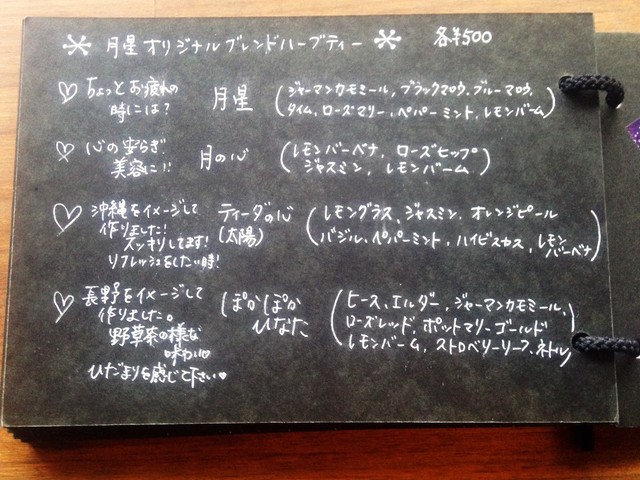 月星オリジナルブレンドハーブティー 各¥500
♡ ちょっとお疲れの
時には？
月星
(ジャーマンカモミール, ブラックマロウ, ブルーマロウ,
タイム, ローズマリー, ペパーミント, レモンバーム)
♡ 心の安らぎ!
美容に!!
月の心
(レモンバーベナ, ローズヒップ
ジャスミン, レモンバーム)
♡ 沖縄をイメージして
作りました!
スッキリしてます!
リフレッシュをしたい時!
ティーダの心
(太陽)
(レモングラス, ジャスミン, オレンジピール
バジル, ペパーミント, ハイビスカス, レモン
バーベナ)
♡ 長野をイメージして
作りました。
野草茶の様な
味わい♡
ひだまりを感じて下さい♡
ぽかぽか
ひなた
(ヒース, エルダー, ジャーマンカモミール,
ローズレッド, ポットマリーゴールド
レモンバーム, ストロベリーリーフ, ネトル)